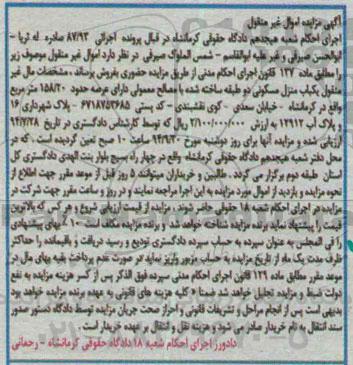 آگهی مزایده اموال غیر منقول
اجرای احکام شعبه هیجدهم دادگاه حقوقی کرمانشاه در قبال پرونده اجرائی ۸۷/۹۳ صادره له ثریا -
ابوالحسن صیرفی و غیر علیه ابوالقاسم - شمس الملوک صیرفی در نظر دارد اموال غیر منقول موصوف زیر
را مطابق ماده ۱۳۷ قانون اجرای احکام مدنی از طریق مزایده حضوری بفروش برساند ، مشخصات مال غیر
منقول یکباب منزل مسکونی دو طبقه ساخته شده با مصالح معمولی دارای عرصه حدود ۱۵۸/۲۰ متر مربع
واقع در کرمانشاه - خیابان سعدی - کوی نقشبندی - کد پستی ۶۷۱۸۷۵۳۶۸۵ - پلاک شهرداری ۱۶
و پلاک آب ۱۲۹۱۲ به ارزش ۲/۱۰۰/۰۰۰/۰۰۰ ریال که توسط کارشناس دادگستری در تاریخ ۹۴/۷/۲۸
ارزیابی شده و مزایده آنها برای روز دوشنبه مورخ ۹۴/۹/۳۰ ساعت ۱۰ صبح تعیین گردیده است . که در
محل دفتر شعبه هیجدهم دادگاه حقوقی کرمانشاه واقع در چهار راه بسیج بلوار بنت الهدی دادگستری کل
استان طبقه دوم برگزار می گردد . طالبین و خریداران میتوانند ۵ روز قبل از موعد مقرر جهت اطلاع از
نحوه مزایده و بازدید از اموال مورد مزایده به این اجرا مراجعه نمایند و در روز و ساعت مقرر جهت شرکت در
مزایده در اجرای احکام شعبه ۱۸ حقوقی حاضر شوند . مزایده از قیمت ارزیابی شروع و هر کس که بالاترین
قیمت را پیشنهاد نماید برنده مزایده شناخته خواهد شد و برنده مزایده مکلف است ۱۰٪ بهای پیشنهادی
را فی المجلس به عنوان سپرده به حساب سپرده دادگستری تودیع و رسید دریافت و باقیمانده را حداکثر
ظرف مدت یک ماه از تاریخ مزایده به حساب مزبور واریز نماید در صورت عدم پرداخت بقیه بهای مال در
موعد مقرر مطابق ماده ۱۲۹ قانون اجرای احکام مدنی سپرده فوق الذکر پس از کسر هزینه مزایده به نفع
دولت ضبط و مزایده تجدید خواهد شد ضمنا کلیه هزینه های قانونی به عهده برنده مزایده خواهد بود
بدیهی است پس از انجام مراحل و تشریفات قانونی و احراز صحت جریان مزایده توسط دادگاه دستور صدور
سند انتقال به نام خریدار صادر می شود و هزینه نقل و انتقال بر عهده خریدار است .
دادورز اجرای احکام شعبه ۱۸ دادگاه حقوقی کرمانشاه - رحمانی